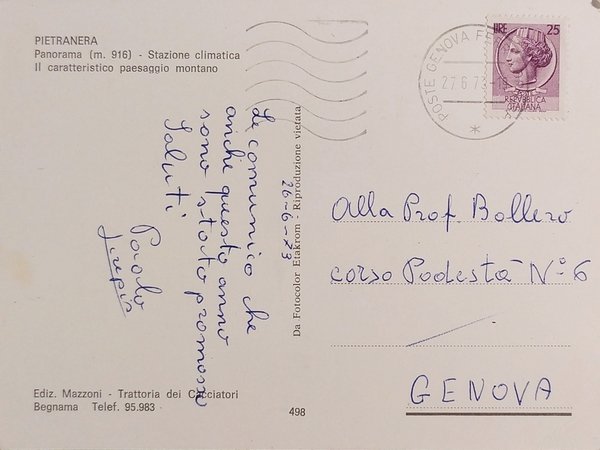 PIETRANERA
Panorama (m. 916) - Stazione climatica
Il caratteristico paesaggio montano
POSTE GENOVA FE
27 6 73
LIRE 25
REPVBBLICA
ITALIANA
26-6-73
Le comunico che
anche questo anno
sono stato promosso
Saluti
Paolo
Da Fotocolor Etakrom - Riproduzione vietata
Alla Prof. Bollero
corso Podestà N° 6
GENOVA
Ediz. Mazzoni - Trattoria dei Cacciatori
Begnama Telef. 95.983
498